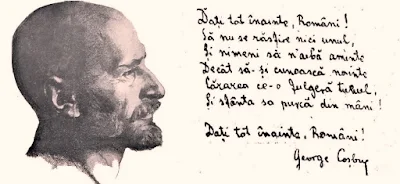 Dați tot înainte, Români!
Să nu se răsfire nici unul,
Și nimeni să n'aibă aminte
Decât să-și cunoască nainte
Cărarea ce-o fulgeră tunul,
Și sfânta sa pușcă din mâni!
Dați tot înainte, Români!
George Coșbuc